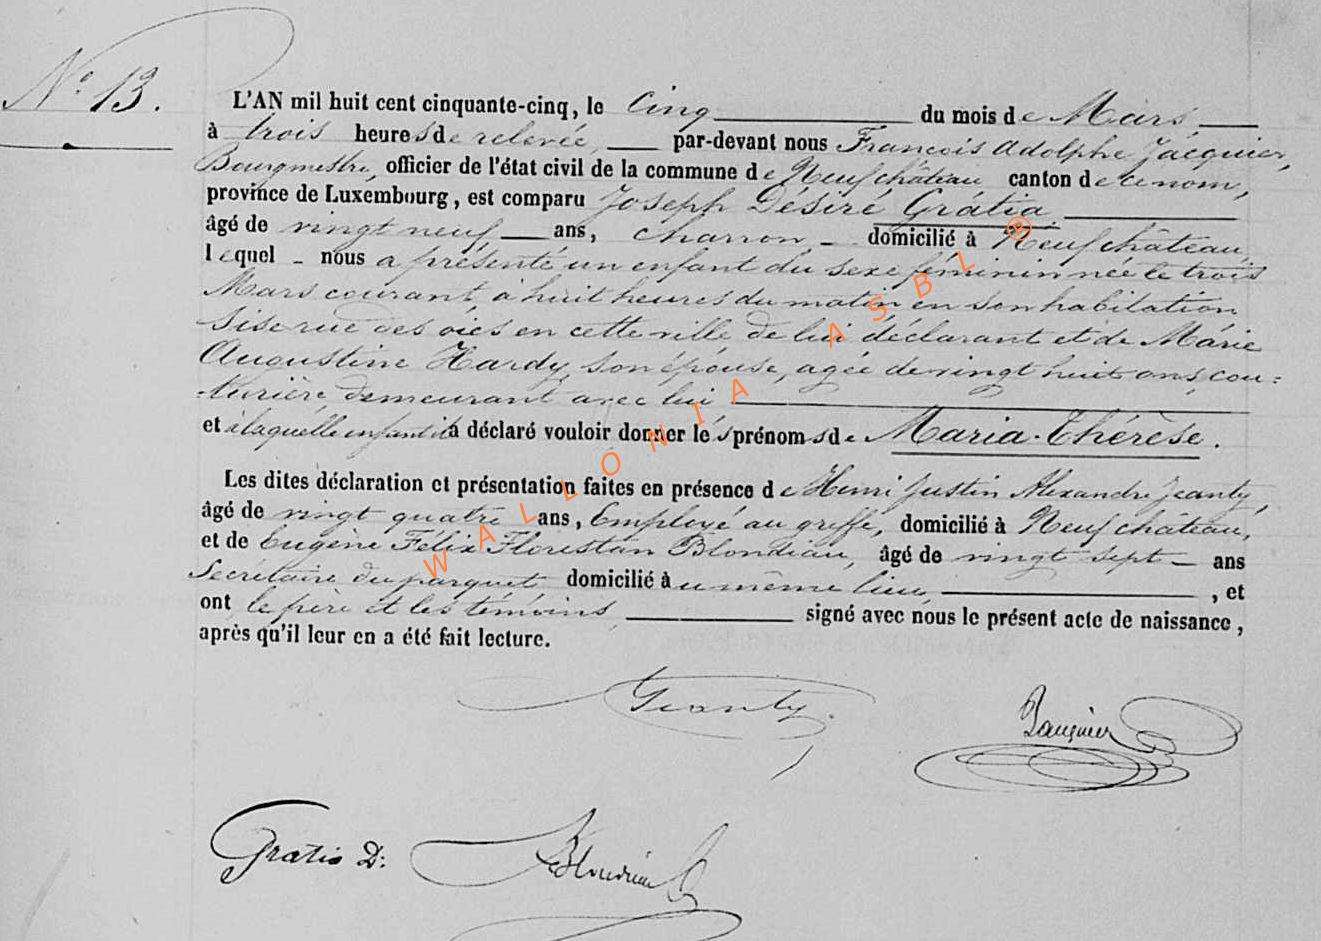 N° 13.
L'AN mil huit cent cinquante-cinq, le Cinq du mois de Mars
à trois heures de relevée, par-devant nous François Adolphe Jacquier,
Bourgmestre, officier de l'état civil de la commune de Neufchâteau canton de ce nom,
province de Luxembourg, est comparu Joseph Désiré Gratia
âgé de vingt neuf ans, charron domicilié à Neufchâteau,
lequel nous a présenté un enfant du sexe féminin née le trois
Mars courant, à huit heures du matin en son habitation
sise rue des oies en cette ville de lui déclarant et de Marie
Augustine Hardy, son épouse, agée de vingt huit ans, cou=
=turière demeurant avec lui,
et à laquelle enfant il a déclaré vouloir donner les prénoms de Maria-Thérèse.
Les dites déclaration et présentation faites en présence de Henri Justin Alexandre Jeanty,
âgé de vingt quatre ans, Employé au greffe, domicilié à Neufchâteau,
et de Eugène Félix Florestan Blondiau, âgé de vingt sept ans
Secrétaire du parquet domicilié au même lieu, , et
ont le père et les témoins, signé avec nous le présent acte de naissance,
après qu'il leur en a été fait lecture.
Jeanty
Jacquier
Gratia D:
Blondiau
WALLONIA ASBL ®